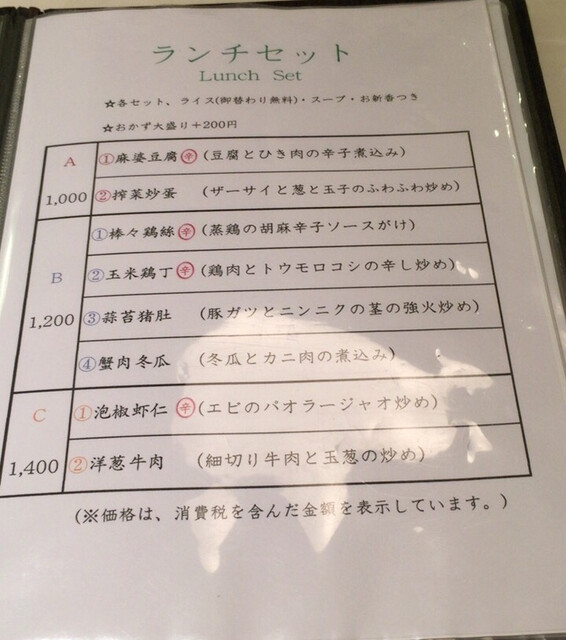 ランチセット
Lunch Set
☆各セット、ライス(御替わり無料)・スープ・お新香つき
☆おかず大盛り＋200円
A
1,000
①麻婆豆腐㊛(豆腐とひき肉の辛子煮込み)
②搾菜炒蛋 (ザーサイと葱と玉子のふわふわ炒め)
B
1,200
①棒々鶏絲辛(蒸鶏の胡麻辛子ソースがけ)
②玉米鶏丁辛(鶏肉とトウモロコシの辛し炒め)
③蒜苔猪肚 (豚ガツとニンニクの茎の強火炒め)
④蟹肉冬瓜 (冬瓜とカニ肉の煮込み)
C
1,400
①泡椒虾仁辛(エビのパオラージャオ炒め)
②洋葱牛肉 (細切り牛肉と玉葱の炒め)
(※価格は、消費税を含んだ金額を表示しています。)